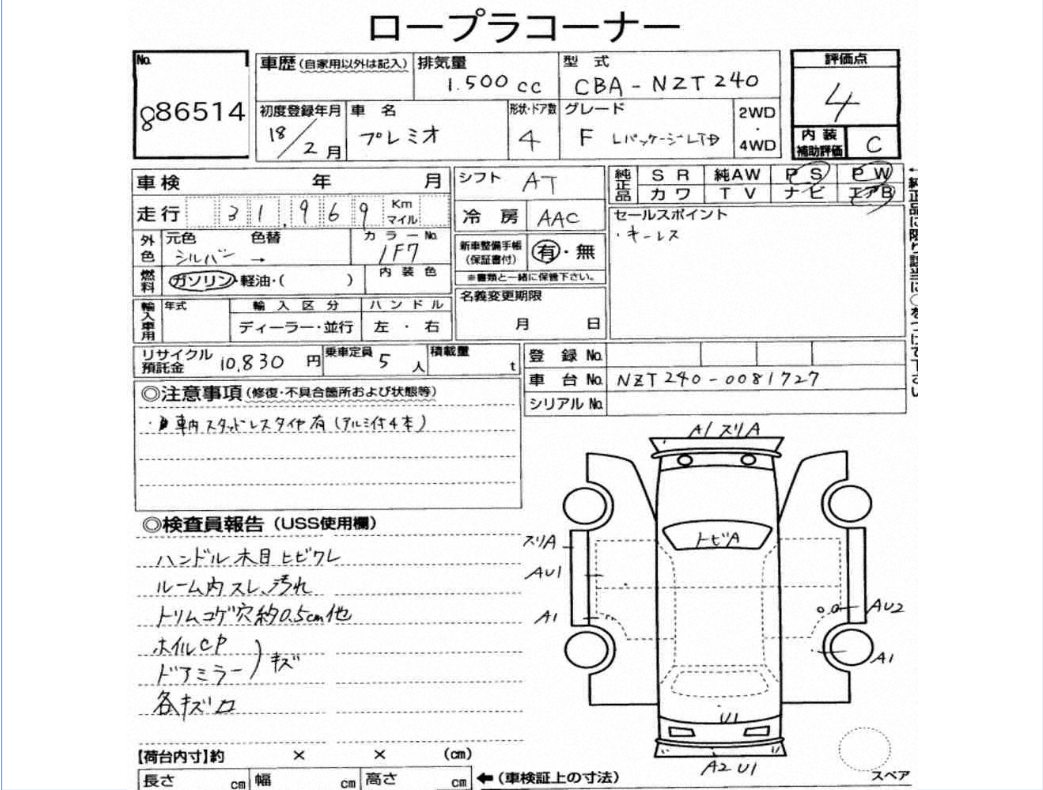 ロープラコーナー
No.
86514
車歴(自家用以外は記入)
排気量
1.500cc
型式
CBA-NZT240
評価点
4
内装補助評価
C
初度登録年月
18/2月
車名
プレミオ
形状・ドア数
4
グレード
F LパッケージLTD
2WD・4WD
車検 年 月
走行 31,969 Km マイル
外色
元色
シルバー
色替
→
カラーNo.
1F7
燃料
ガソリン・軽油・( )
内装色
輸入車用
年式
輸入区分
ディーラー・並行
ハンドル
左・右
シフト
AT
冷房
AAC
新車整備手帳(保証書付)
有・無
※書類と一緒に保管下さい。
名義変更期限
月 日
純正品
SR 純AW PS PW
カワ TV ナビ エアB
セールスポイント
・キーレス
←純正品に限り該当に○をつけて下さい
リサイクル預託金
10,830円
乗車定員
5人
積載量
t
登録No.
車台No.
NZT240-0081727
シリアルNo.
◎注意事項(修復・不具合箇所および状態等)
車内スタッドレスタイヤ有(アルミ付4本)
◎検査員報告(USS使用欄)
ハンドル木目ヒビワレ
ルーム内スレ、汚れ
トリムコゲ穴約0.5cm他
ホイルCP
ドアミラー
キズ
各キズロ
A1 スリA
トビA
スリA
AU1
A1
AU2
A1
U1
A2 U1
スペア
【荷台内寸】約 × × (cm)
長さ cm 幅 cm 高さ cm
←(車検証上の寸法)